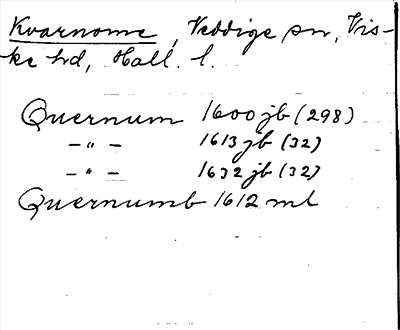 Kvarnome, Veddige sn, Vis-
ke hd, Hall. l.
Quernum 1600 jb (298)
-"- 1613 jb (32)
-"- 1632 jb (32)
Quernumb 1612 ml